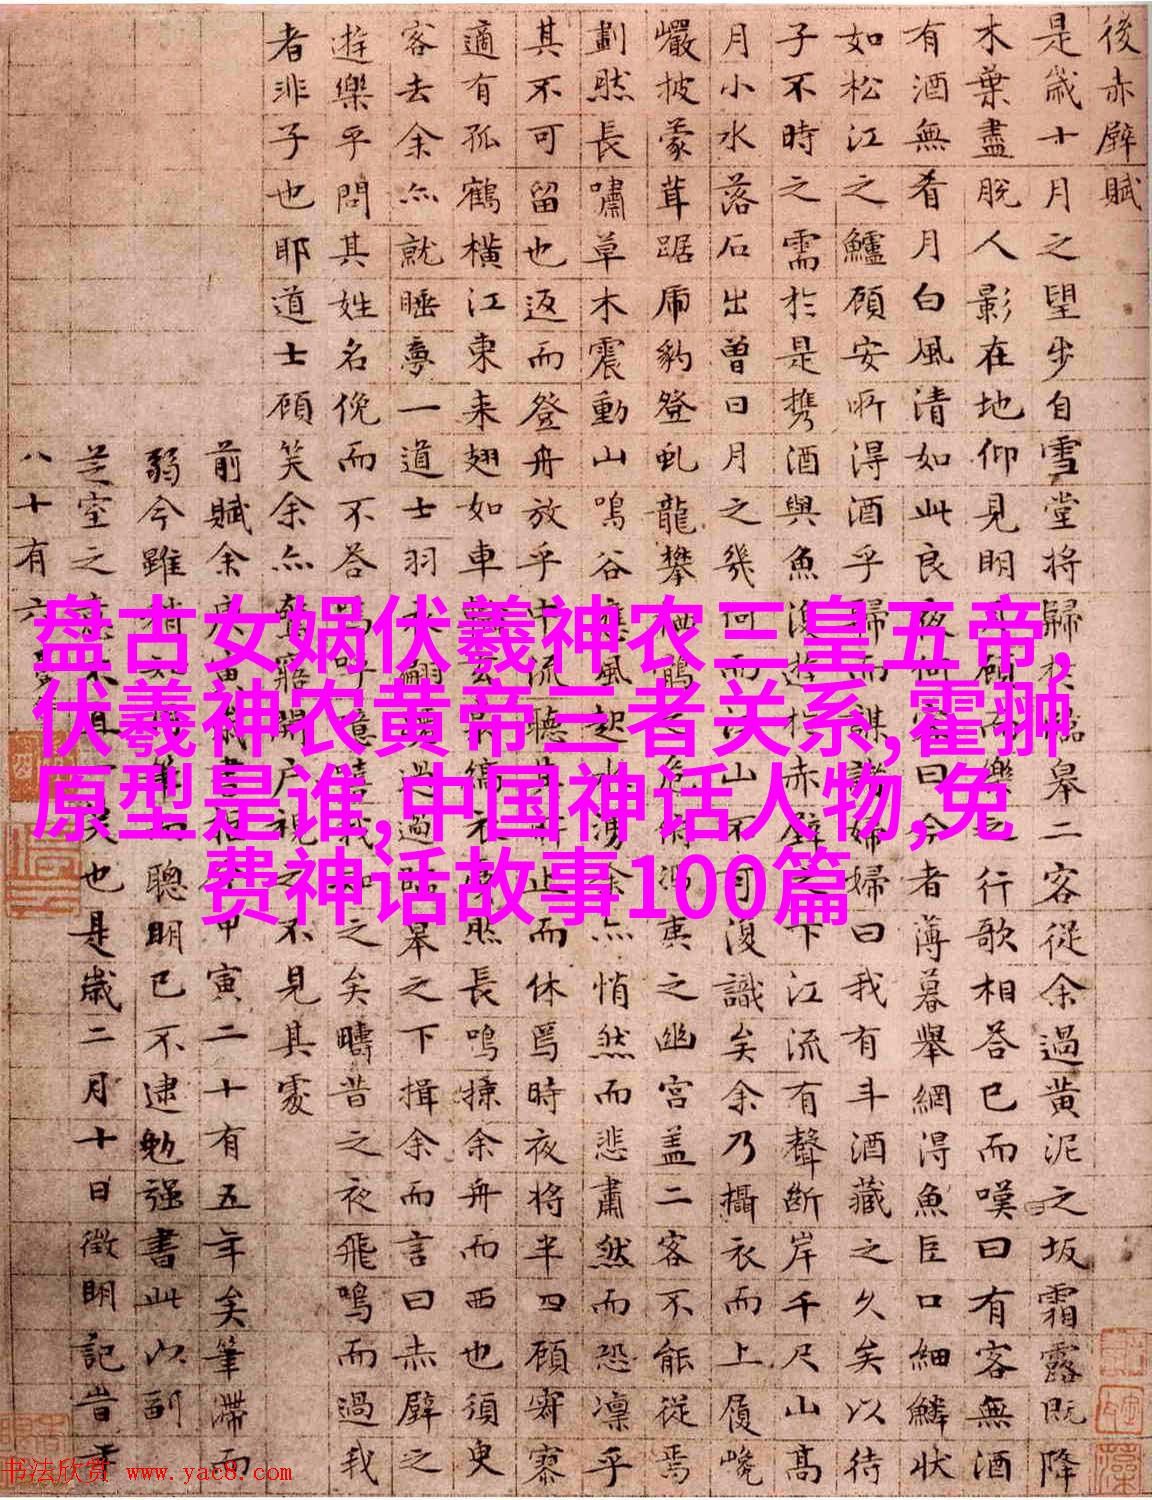 後赤壁賦
是歲十月之望步自雪堂將歸於臨皋二客從余過黃泥之坂霜露既降
木葉盡脫人影在地仰見明月顧而樂之行歌相答已而嘆曰有客無酒
有酒無肴月白風清如此良夜何客曰今者薄暮舉網得魚巨口細鱗狀
如松江之鱸顧安所得酒乎歸而謀諸婦婦曰我有斗酒藏之久矣以待
子不時之需於是攜酒與魚復遊於赤壁之下江流有聲斷岸千尺山高
月小水落石出曾日月之幾何而江山不可復識矣余乃攝衣而上履巉
巖披蒙茸踞虎豹登虬龍攀栖鶻之危俯馮夷之幽宮蓋二客不能從焉
劃然長嘯草木震動山鳴谷應風起水湧余亦悄然而悲肅然而恐凜乎
其不可留也返而登舟放乎中流聽其所止而休焉時夜將半四顧寂寥
適有孤鶴橫江東來翅如車輪玄裳縞衣戛然長鳴掠余舟而西也須臾
客去余亦就睡夢一道士羽衣翩躚過臨皋之下揖余而言曰赤壁之
遊樂乎問其姓名俛而不答嗚呼噫嘻我知之矣疇昔之夜飛鳴而過我
者非子也耶道士顧笑余亦驚寤開戶視之不見其處
前賦余甲寅二十有五年矣筆滯而
弱今雖聰明已不逮勉强書此以副
芝室之也是歲二月十日徵明記
八十有六
盘古女娲伏羲神农三皇五帝,
伏羲神农黄帝三者关系,霍翀
原型是谁,中国神话人物,免
费神话故事100篇
书法欣赏 www.yac8.com